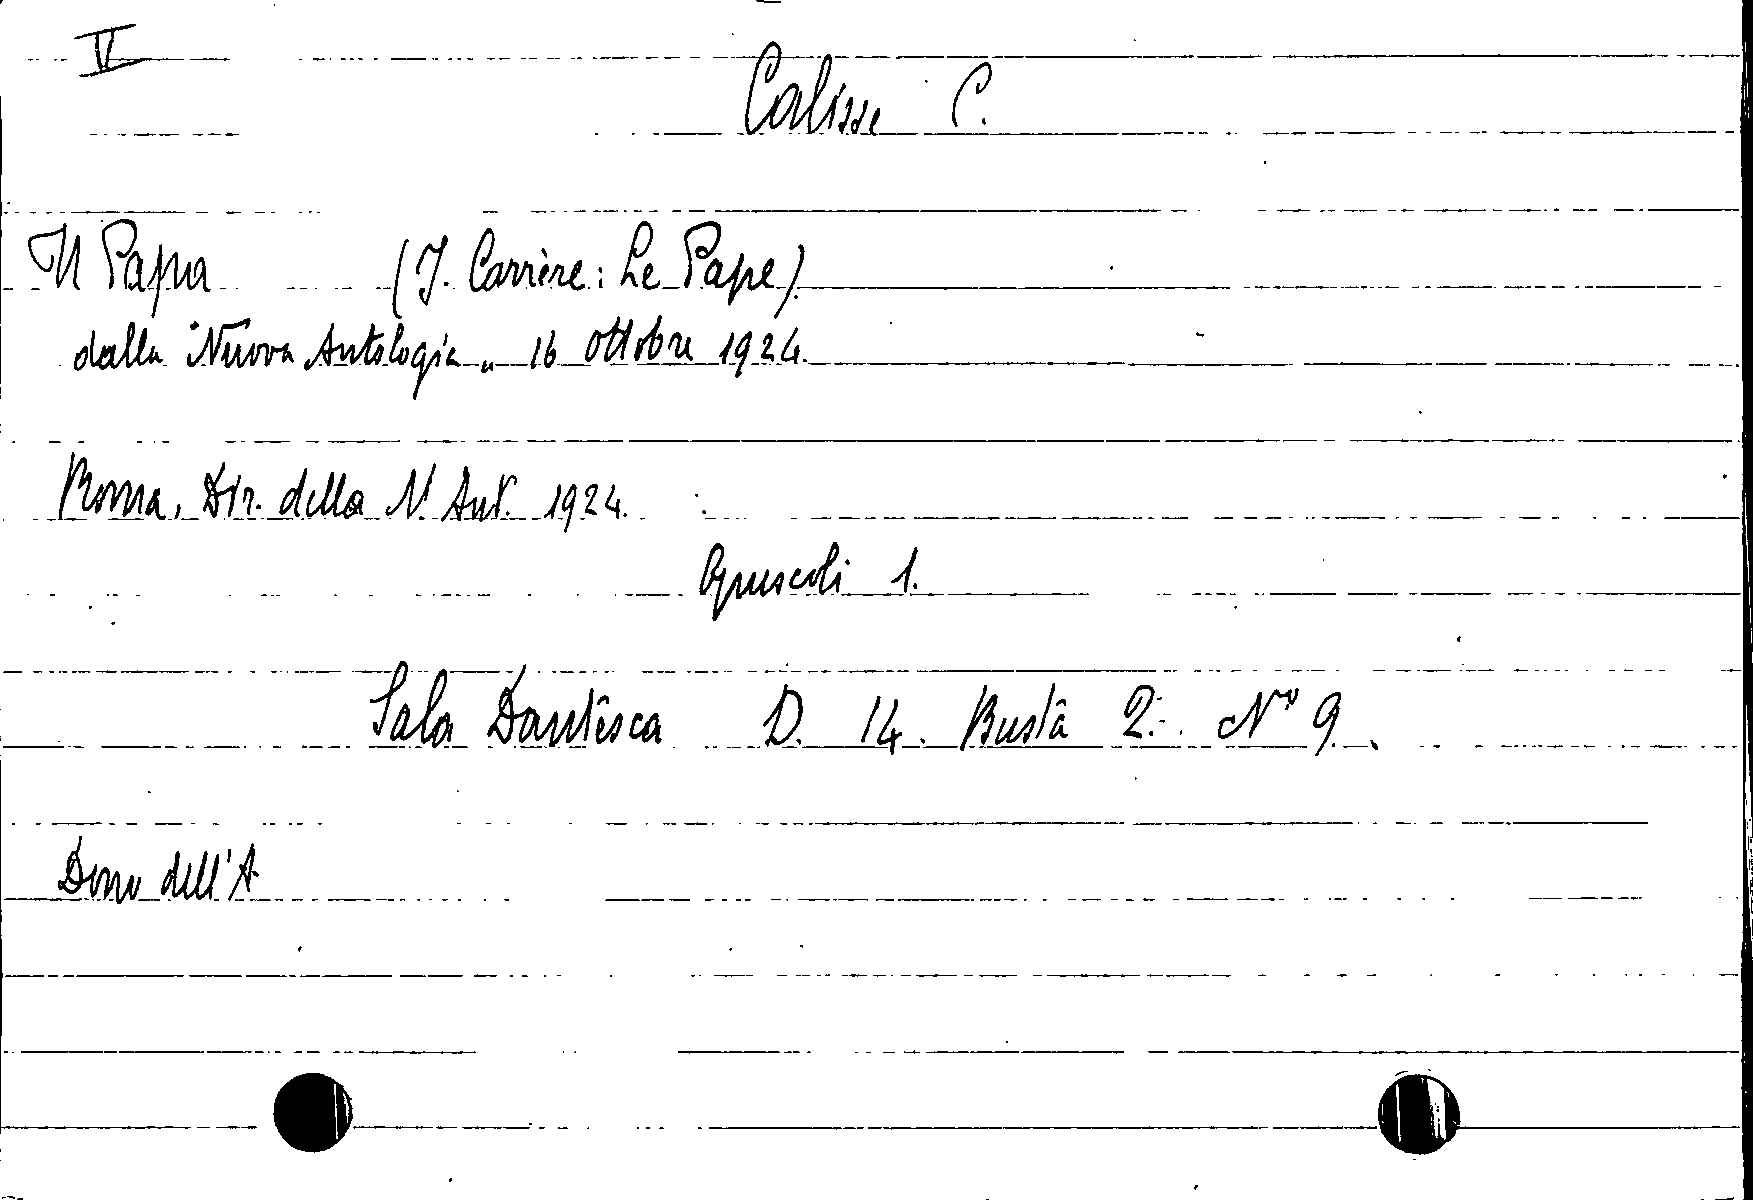 V
Calisse C.
Il Papa (J. Carrère: Le Pape)
dalla "Nuova Antologia" 16 ottobre 1924.
Roma, Dir. della N. Ant. 1924.
Opuscoli 1.
Sala Dantesca D. 14. Busta 2. No 9.
Dono dell'A